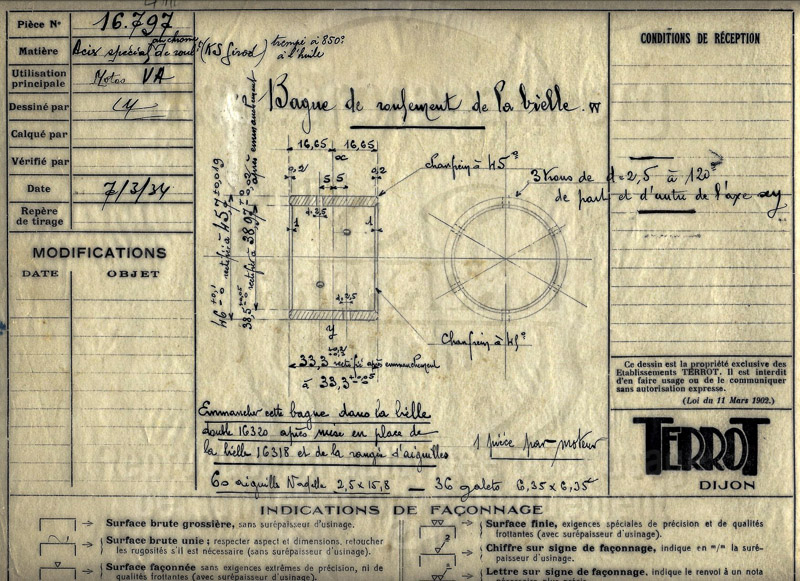 Pièce N° 16.797
Matière Acier spécial au chrome de roul! (KS Girod) trempé à 850°
à l'huile
Utilisation
principale Motos VA
Dessiné par
Calqué par
Vérifié par
Date 7/3/34
Repère
de tirage
MODIFICATIONS
DATE OBJET
Bague de roulement de la bielle.
16,65 16,65
x
0,2 0,2
5 5
d=2,5
1 1
d=2,5
y
46 +0,1 -0 rectifié à 45,7 +0,019
38,5 rectifié à 38,97 +0,02 après emmanchement
33,3 rectifié après emmanchement
à 33,3
chanfrein à 45°
3 trous de d=2,5 à 120°
de part et d'autre de l'axe xy
Chanfrein à 45°
Emmancher cette bague dans la bielle
double 16320 après mise en place de
la bielle 16318 et de la rangée d'aiguilles
60 aiguille Nadelle 2,5 x 15,8 — 36 galets 6,35 x 6,35
1 pièce par moteur
CONDITIONS DE RÉCEPTION
Ce dessin est la propriété exclusive des
Etablissements TERROT. Il est interdit
d'en faire usage ou de le communiquer
sans autorisation expresse.
(Loi du 11 Mars 1902.)
TERROT
DIJON
INDICATIONS DE FAÇONNAGE
Surface brute grossière, sans surépaisseur d'usinage.
Surface brute unie; respecter aspect et dimensions, retoucher
les rugosités s'il est nécessaire (sans surépaisseur d'usinage).
Surface façonnée sans exigences extrêmes de précision, ni de
qualités frottantes (avec surépaisseur d'usinage).
Surface finie, exigences spéciales de précision et de qualités
frottantes (avec surépaisseur d'usinage).
2
Chiffre sur signe de façonnage, indique en m/m la suré-
paisseur d'usinage.
Lettre sur signe de façonnage, indique le renvoi à un nota